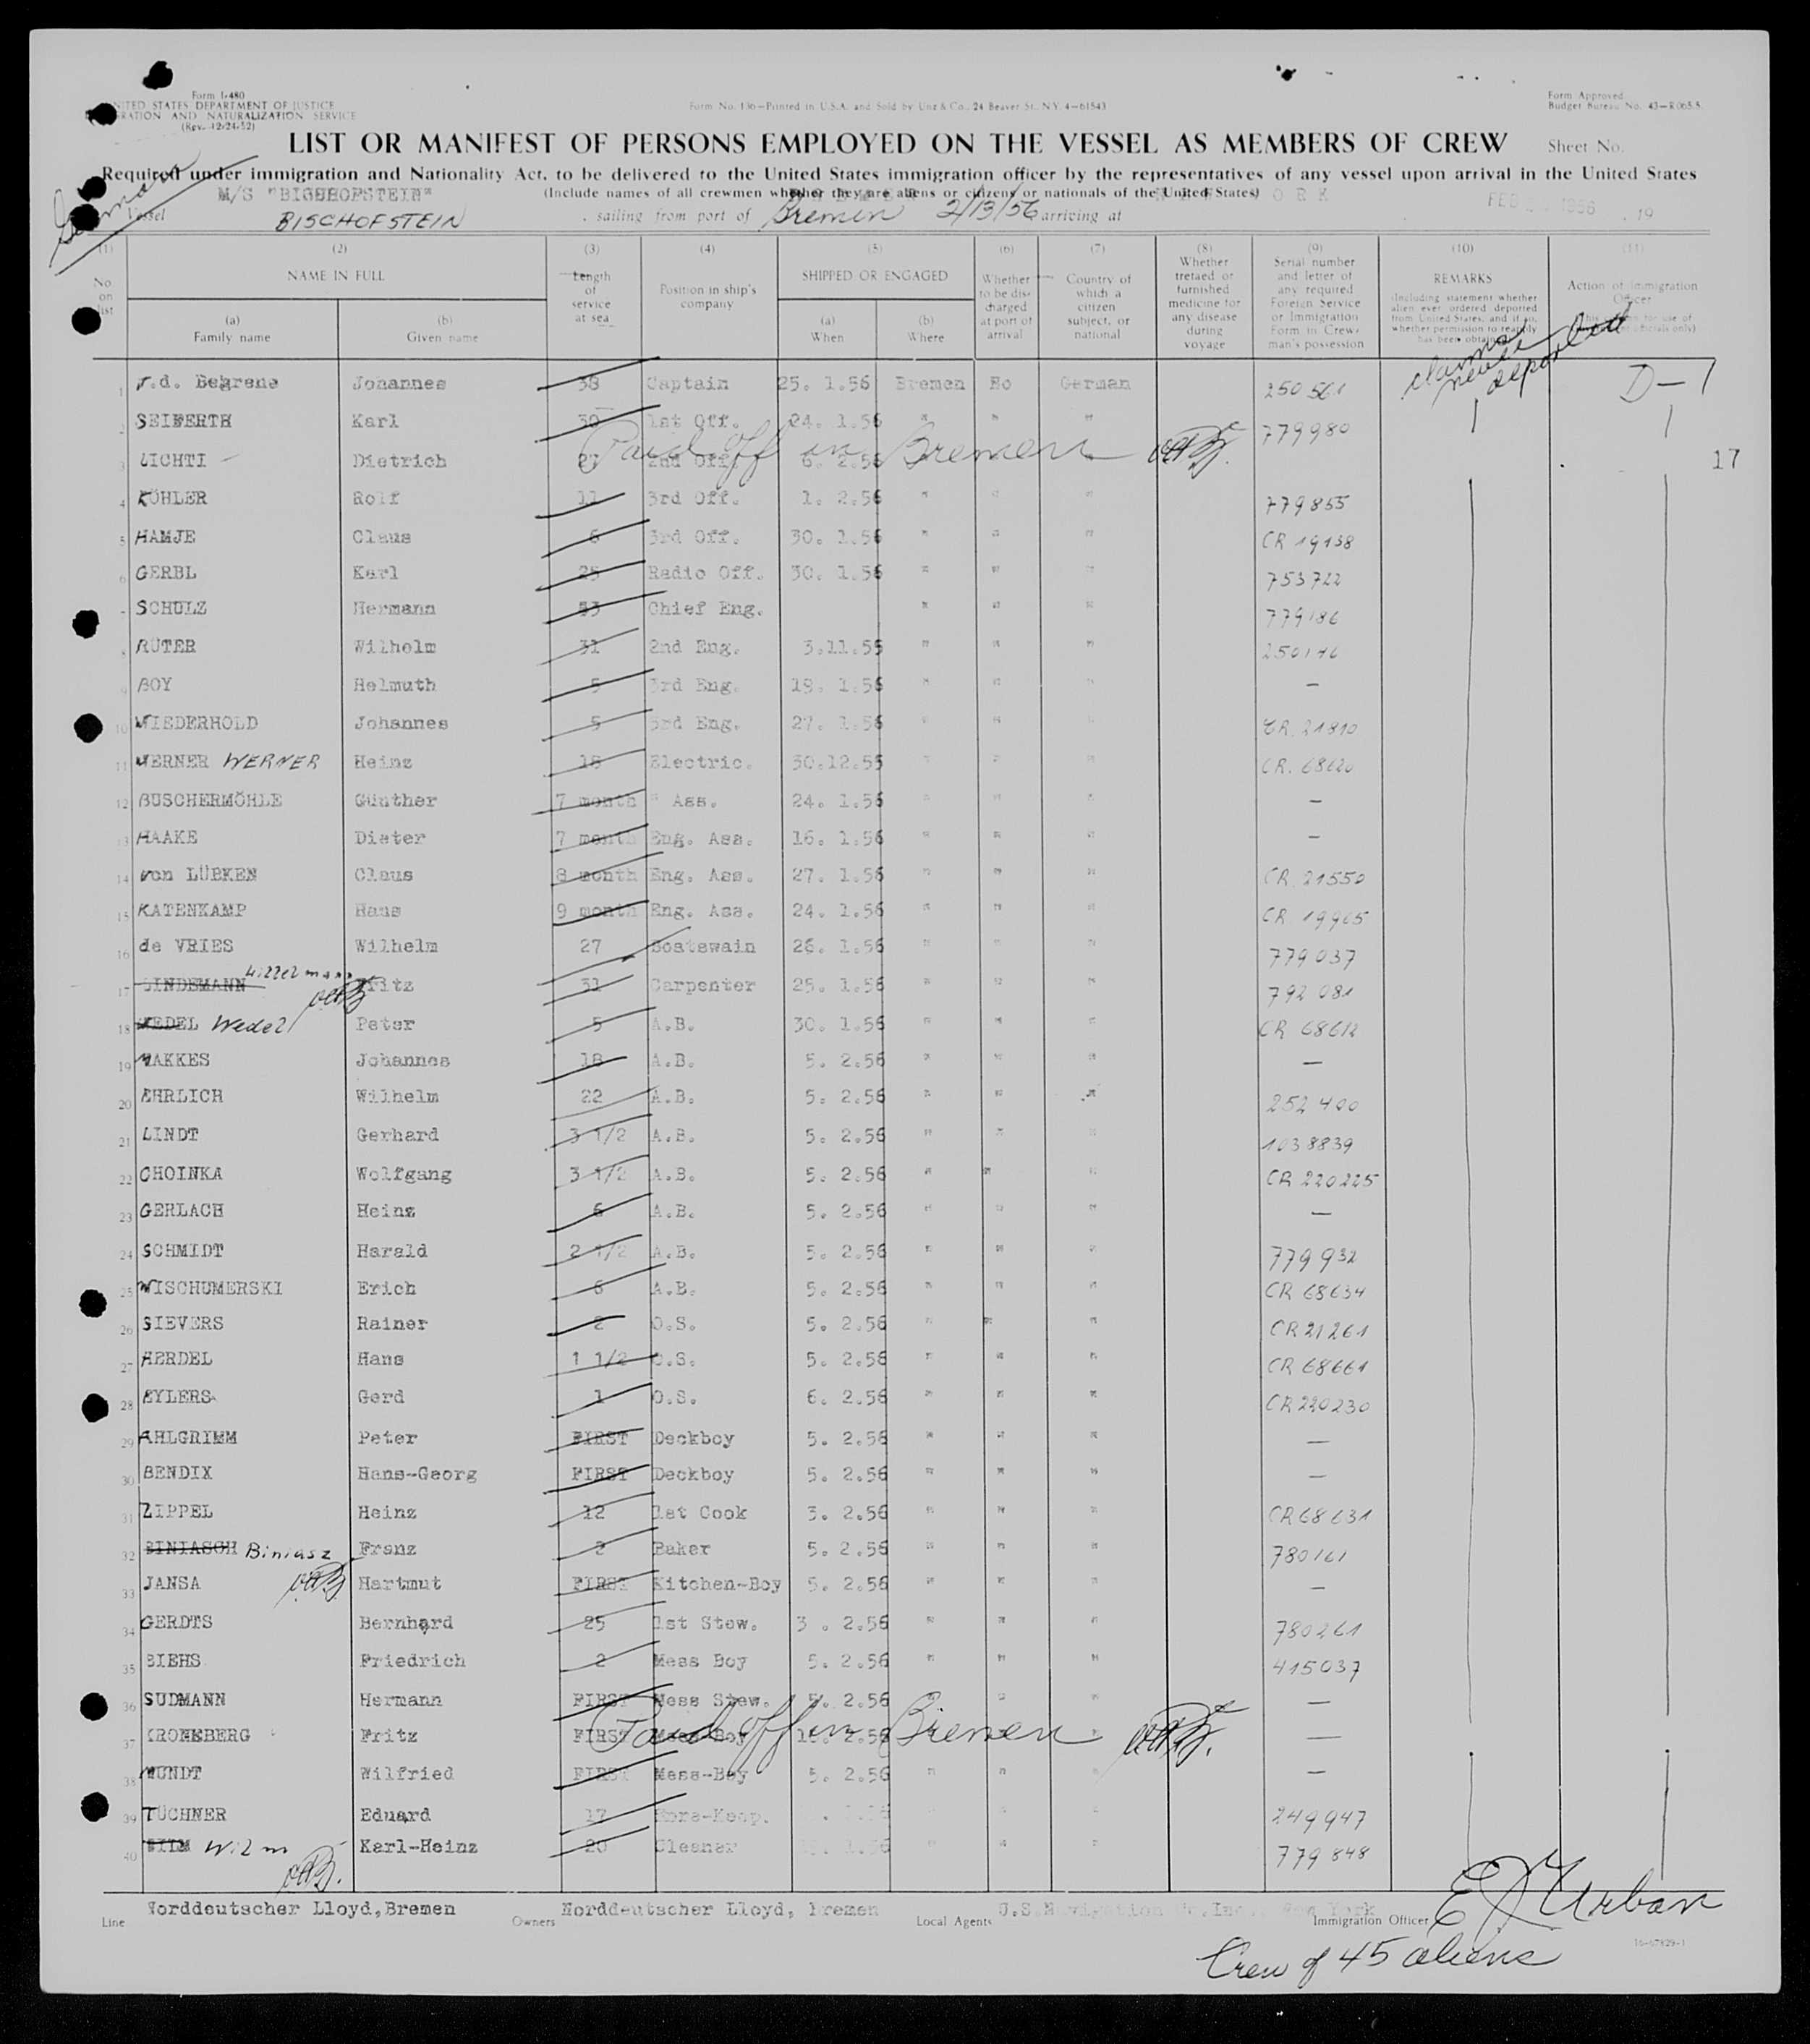 Form I-480
UNITED STATES DEPARTMENT OF JUSTICE
IMMIGRATION AND NATURALIZATION SERVICE
(Rev. 12-24-52)
Form No. 136—Printed in U.S.A. and Sold by Unz & Co., 24 Beaver St., N.Y. 4—61543
Form Approved
Budget Bureau No. 43—R065.5.
LIST OR MANIFEST OF PERSONS EMPLOYED ON THE VESSEL AS MEMBERS OF CREW
Sheet No.
Required under immigration and Nationality Act, to be delivered to the United States immigration officer by the representatives of any vessel upon arrival in the United States
(Include names of all crewmen whether they are aliens or citizens or nationals of the United States)
German
Vessel M/S "BISCHOFSTEIN" BISCHOFSTEIN sailing from port of Bremen 2/13/56 arriving at FEB 1956 , 19
(1) (2) (3) (4) (5) (6) (7) (8) (9) (10) (11)
No on list
NAME IN FULL
(a) Family name
(b) Given name
Length of service at sea
Position in ship's company
SHIPPED OR ENGAGED
(a) When
(b) Where
Whether to be discharged at port of arrival
Country of which a citizen subject, or national
Whether tretaed or furnished medicine for any disease during voyage
Serial number and letter of any required Foreign Service or Immigration Form in Crewman's possession
REMARKS
(Including statement whether alien ever ordered deported from United States, and if so, whether permission to reapply has been obtained)
Action of Immigration Officer
claims never deported
1 v.d. Behrens Johannes 38 Captain 25. 1.56 Bremen No German 250 561 D—1
2 SEIFERTH Karl 30 1st Off. 24. 1.56 " " " 779980
3 LICHTI Dietrich 2nd Off. 6. 2.56 Paid off in Bremen 17
4 KÖHLER Rolf 11 3rd Off. 1. 2.56 " " " 779855
5 HAMJE Claus 6 3rd Off. 30. 1.56 " " " CR 19138
6 GERBL Karl 25 Radio Off. 30. 1.56 " " " 753722
SCHULZ Hermann Chief Eng. " " " 779186
8 RÜTER Wilhelm 31 2nd Eng. 3.11.55 " " " 250116
9 BOY Helmuth 5 3rd Eng. 19. 1.56 " " " —
10 WIEDERHOLD Johannes 5 3rd Eng. 27. 1.56 " " " CR. 21810
11 WERNER WERNER Heinz 18 Electric. 30.12.55 " " " CR. 68620
12 BUSCHERMÖHLE Günther 7 month " Ass. 24. 1.56 " " " —
13 HAAKE Dieter 7 month Eng. Ass. 16. 1.56 " " " —
14 von LÜBKEN Claus 8 month Eng. Ass. 27. 1.56 " " " CR. 21550
15 KATENKAMP Hans 9 month Eng. Ass. 24. 1.56 " " " CR 19965
16 de VRIES Wilhelm 27 Boatswain 26. 1.56 " " " 779037
17 LINDEMANN Fritz 31 Carpenter 25. 1.56 " " " 792 081
18 WEDEL Wedel Peter 5 A.B. 30. 1.56 " " " CR 68612
19 MAKKES Johannes 18 A.B. 5. 2.56 " " " —
20 EHRLICH Wilhelm 22 A.B. 5. 2.56 " " " 252 400
21 LINDT Gerhard 3 1/2 A.B. 5. 2.56 " " " 1038839
22 CHOINKA Wolfgang 3 1/2 A.B. 5. 2.56 " " " CR 220225
23 GERLACH Heinz 6 A.B. 5. 2.56 " " " —
24 SCHMIDT Harald 2 1/2 A.B. 5. 2.56 " " " 779932
25 WISCHUMERSKI Erich 6 A.B. 5. 2.56 " " " CR 68634
26 SIEVERS Rainer 2 O.S. 5. 2.56 " " " CR 21261
27 HERDEL Hans 1 1/2 O.S. 5. 2.56 " " " CR 68661
28 EYLERS Gerd 1 O.S. 6. 2.56 " " " CR 220230
29 AHLGRIMM Peter FIRST Deckboy 5. 2.56 " " " —
30 BENDIX Hans-Georg FIRST Deckboy 5. 2.56 " " " —
31 ZIPPEL Heinz 12 1st Cook 3. 2.56 " " " CR 68631
32 BINIASCH Biniasz Franz 2 Baker 5. 2.56 " " " 780161
33 JANSA Hartmut FIRST Kitchen-Boy 5. 2.56 " " " —
34 GERDTS Bernhard 25 1st Stew. 3 . 2.56 " " " 780261
35 BIEHS Friedrich 2 Mess Boy 5. 2.56 " " " 415037
36 SUDMANN Hermann FIRST Mess Stew. 5. 2.56 " " " —
37 KRONEBERG Fritz FIRST Mess-Boy Paid off in Bremen —
38 MUNDT Wilfried FIRST Mess-Boy 5. 2.56 " " " —
39 TÜCHNER Eduard 17 249947
40 Wilm Karl-Heinz 20 Cleaner 779848
Line Norddeutscher Lloyd, Bremen Owners Norddeutscher Lloyd, Bremen Local Agents U.S. Navigation Co. Inc., New York Immigration Officer E J Urban
16-67829-1
Crew of 45 aliens